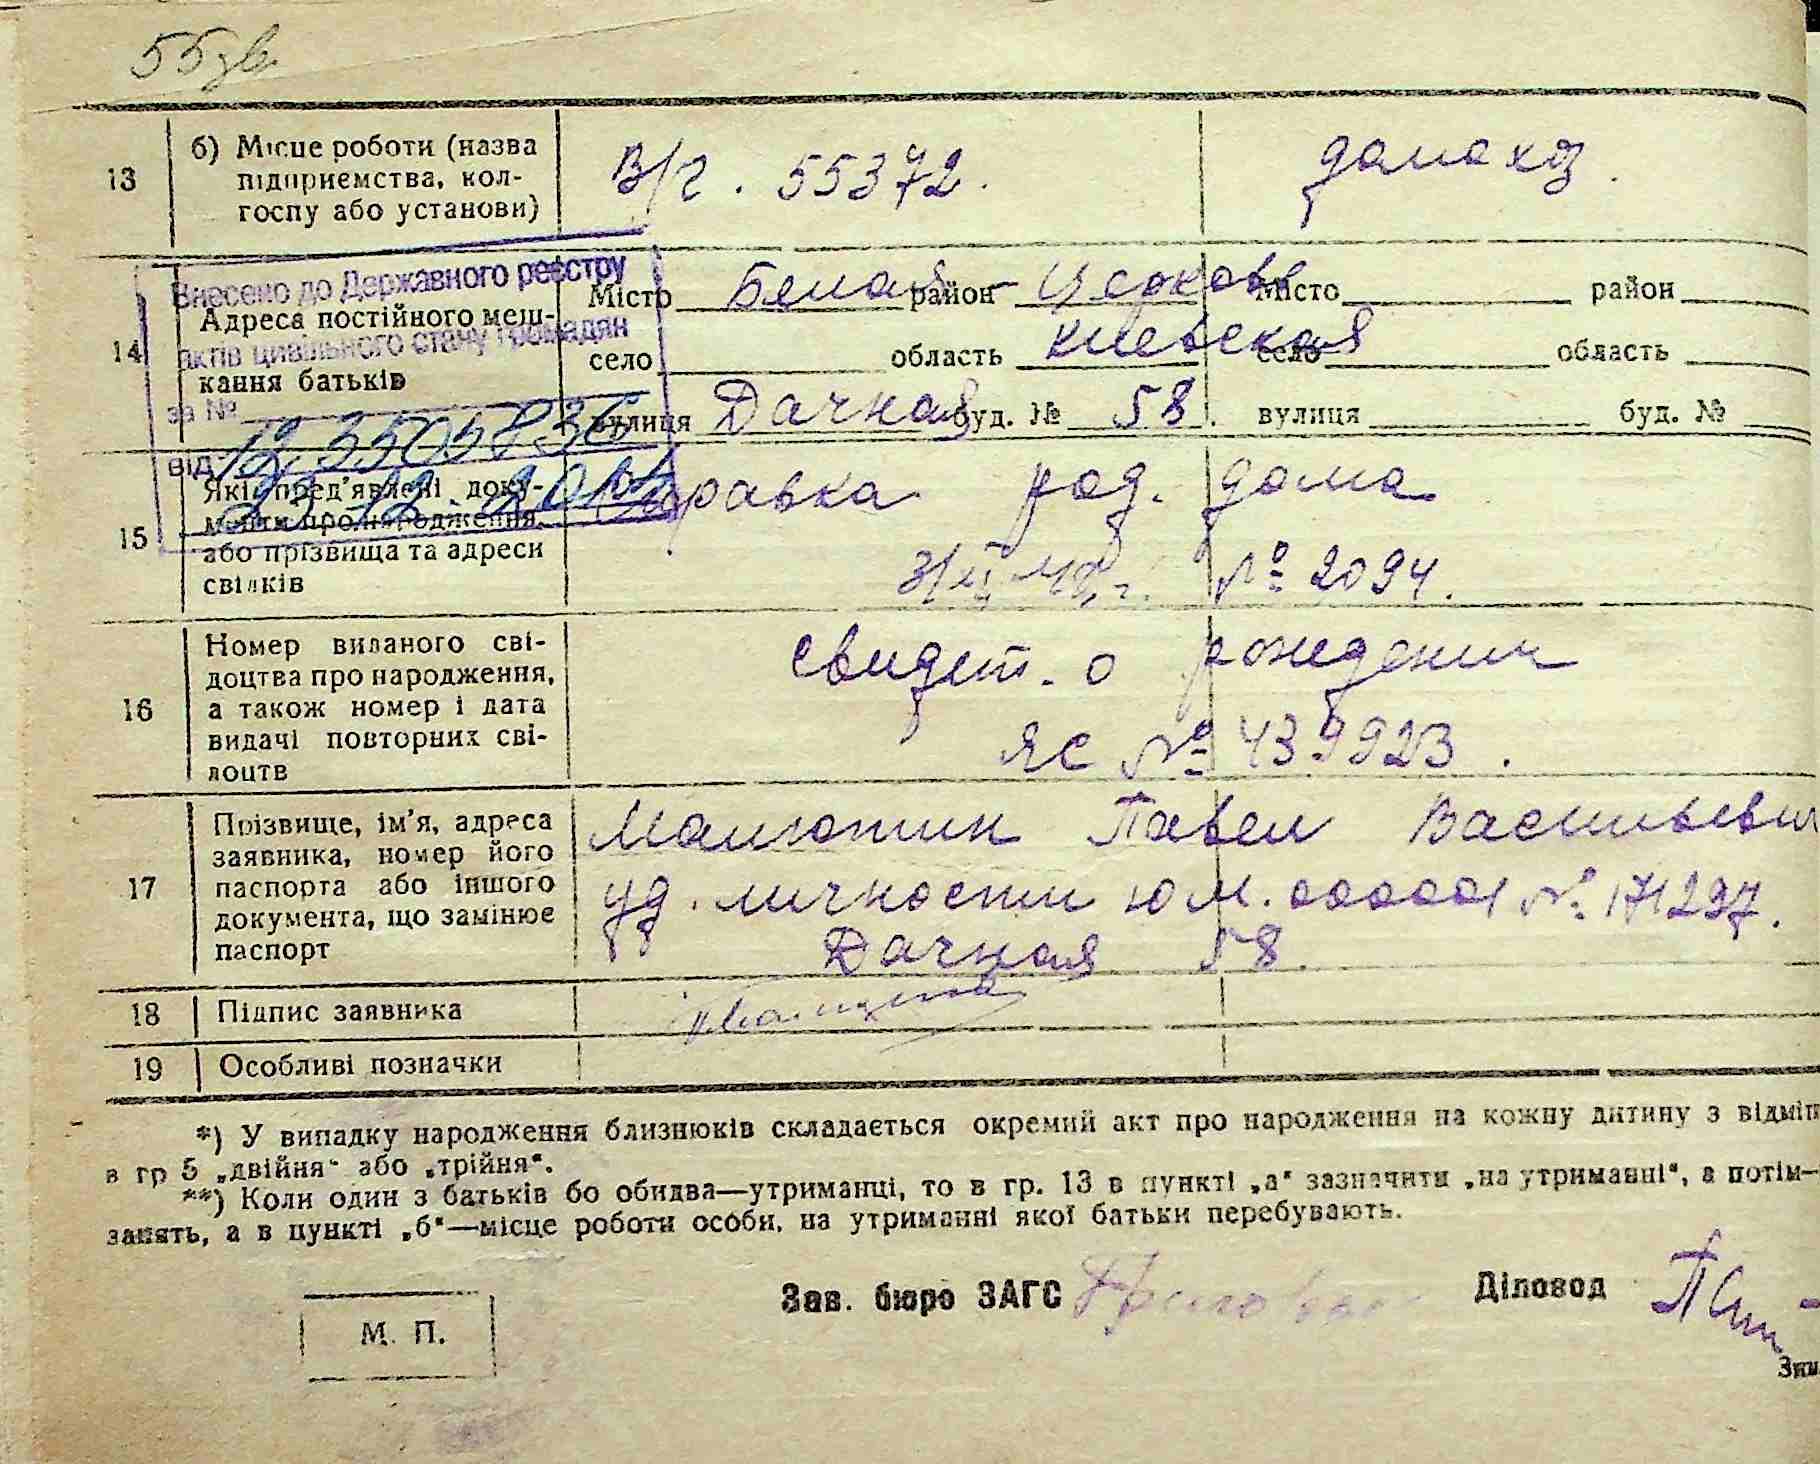 55 зв
13
б) Місце роботи (назва
підприємства, кол-
госпу або установи)
В/г. 55372.
домахоз.
Внесено до Державного реєстру
актів цивільного стану громадян
за №
від
14
Адреса постійного меш-
кання батьків
Місто Белая район Церковь
село область Киевская
вулиця Дачная буд. № 58.
Місто район
село область
вулиця буд. №
15
Які пред'явлені доку-
менти про народження,
або прізвища та адреси
свідків
Справка род. дома
№ 2094.
16
Номер виданого сві-
доцтва про народження,
а також номер і дата
видачі повторних сві-
доцтв
Свидет. о рождении
ЯС № 439923.
17
Прізвище, ім'я, адреса
заявника, номер його
паспорта або іншого
документа, що замінює
паспорт
Малютин Павел Васильевич
уд. личности ЮМ. 000001 № 171297.
Дачная 58.
18
Підпис заявника
19
Особливі позначки
*) У випадку народження близнюків складається окремий акт про народження на кожну дитину з відміт
в гр 5 „двійня“ або „трійня“.
**) Коли один з батьків бо обидва—утриманці, то в гр. 13 в пункті „а“ зазначити „на утриманні“, а потім—
занять, а в пункті „б“—місце роботи особи, на утриманні якої батьки перебувають.
Зав. бюро ЗАГС
Діловод
М. П.